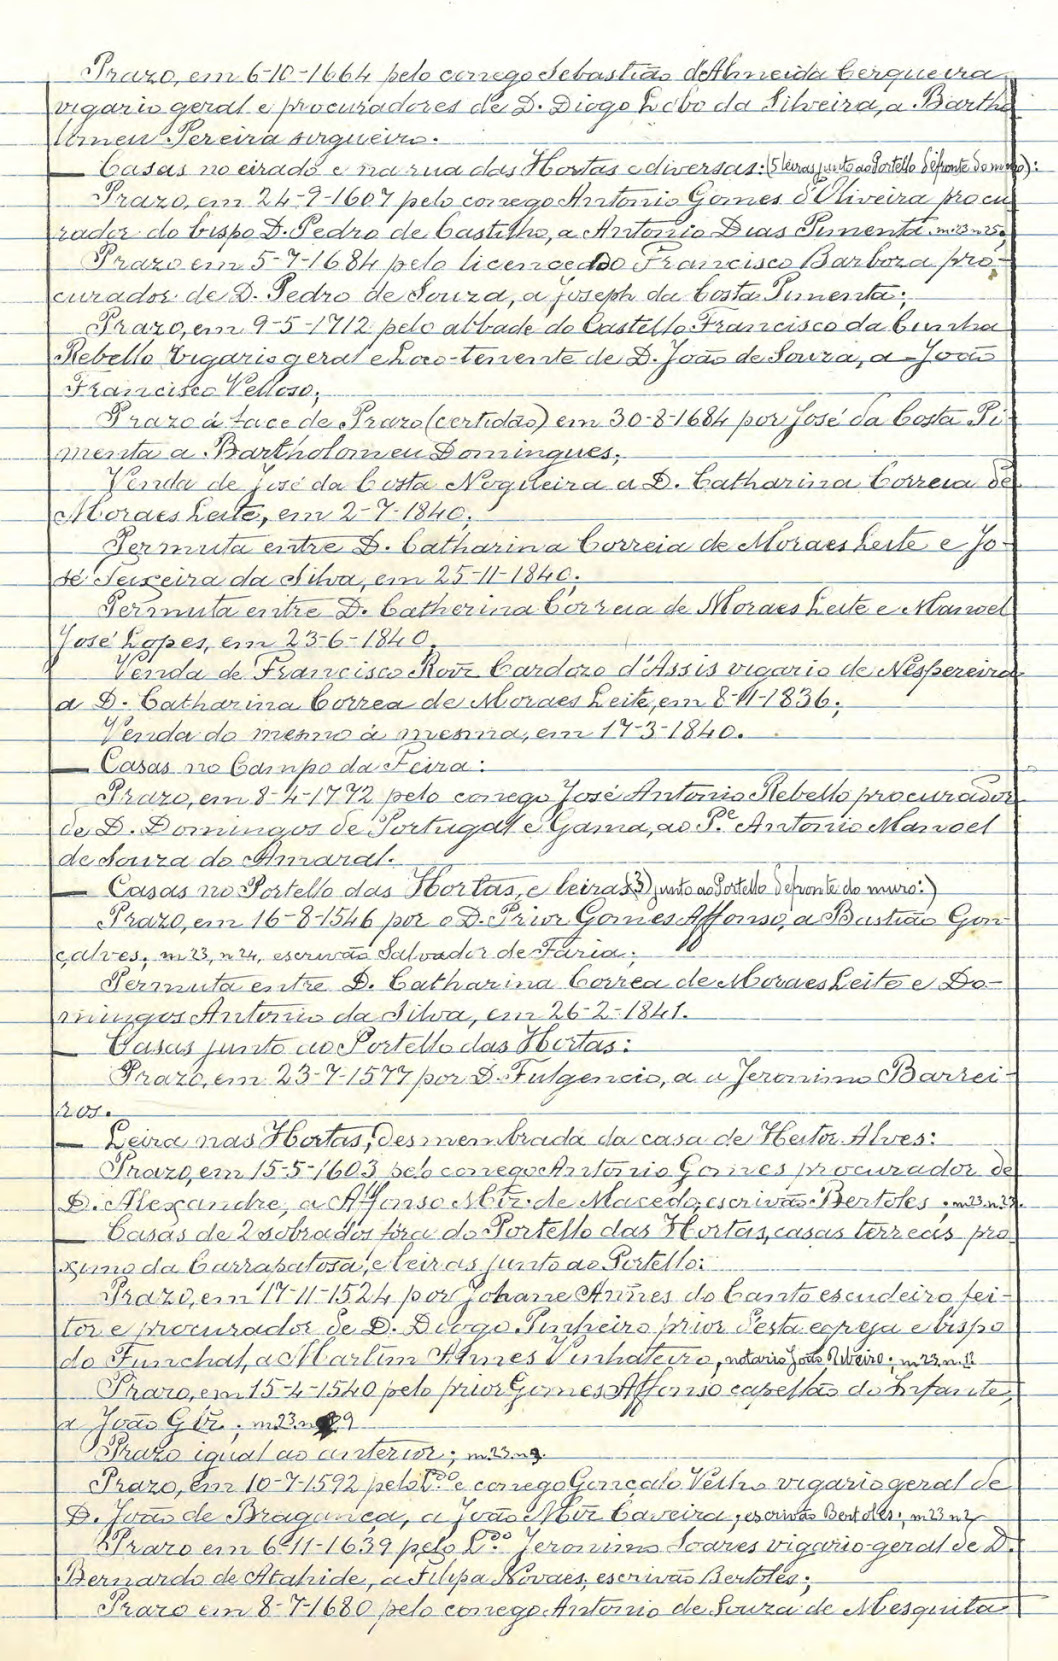 Prazo, em 6-10-1664 pelo conego Sebastião d'Almeida Cerqueira
vigario geral e procuradores de D. Diogo Lobo da Silveira, a Bartho
lomeu Pereira sirgueiro.
— Casas no eirado e na rua das Hortas e diversas: (5 leiras junto ao Portello defronte do muro):
Prazo, em 24-9-1607 pelo conego Antonio Gomes d'Oliveira procu
rador do bispo D. Pedro de Castilho, a Antonio Dias Pimenta. m 23 n 25;
Prazo em 5-7-1684 pelo licenceado Francisco Barboza pro-
curador de D. Pedro de Souza, a Joseph da Costa Pimenta;
Prazo, em 9-5-1712 pelo abbade do Castello Francisco da Cunha
Rebello vigario geral e Loco-tenente de D. João de Souza, a João
Francisco Velloso;
Prazo á face de Prazo (certidão) em 30-8-1684 por José da Costa Pi-
menta a Bartholomeu Domingues;
Venda de José da Costa Nogueira a D. Catharina Correia de
Moraes Leite, em 2-7-1840;
Permuta entre D. Catharina Correia de Moraes Leite e Jo-
sé Teixeira da Silva, em 25-11-1840;
Permuta entre D. Catherina Correia de Moraes Leite e Manoel
José Lopes, em 23-6-1840;
Venda de Francisco Roiz Cardozo d'Assis vigario de Nespereira
a D. Catharina Correa de Moraes Leite, em 8-11-1836;
Venda do mesmo à mesma, em 17-3-1840.
— Casas no Campo da Feira:
Prazo, em 8-4-1772 pelo conego José Antonio Rebello procurador
de D. Domingos de Portugal e Gama, ao P.e Antonio Manoel
de Souza do Amaral.
— Casas no Portello das Hortas, e leiras (3) junto ao Portello defronte do muro:)
Prazo, em 16-8-1546 por o D. Prior Gomes Affonso, a Bastião Gon-
çalves; m 23, n 24, escrivão Salvador de Faria;
Permuta entre D. Catharina Correa de Moraes Leite e Do-
mingos Antonio da Silva, em 26-2-1841.
— Casas junto ao Portello das Hortas:
Prazo, em 23-7-1577 por D. Fulgencio, a a Jeronimo Barrei-
ros.
— Leira nas Hortas, desmembrada da casa de Heitor Alves:
Prazo, em 15-5-1603 pelo conego Antonio Gomes procurador de
D. Alexandre, a Affonso Miz de Macedo, escrivão Bertoles; m 23. n 23.
— Casas de 2 sobrados fóra do Portello das Hortas, casas terreas pro
ximo da Carrapatosa, e leiras junto ao Portello:
Prazo, em 17-11-1524 por Johane Annes do Canto escudeiro fei-
tor e procurador de D. Diogo Pinheiro prior desta egreja e bispo
do Funchal, a Martim Annes Vinhateiro, notario João Ribeiro; m 23. n. 11
Prazo, em 15-4-1540 pelo prior Gomes Affonso capellão do Infante,
a João Glz; m 23. n 9
Prazo igual ao anterior; m 23. n 9.
Prazo, em 10-7-1592 pelo L.do e conego Gonçalo Velho vigario geral de
D. João de Bragança, a João Miz Caveira; escrivão Bertoles; m 23 n 2
Prazo em 6-11-1639 pelo L.do Jeronimo Soares vigario-geral de D.
Bernardo de Atahide, a Filipa Novaes, escrivão Bertoles;
Prazo em 8-7-1680 pelo conego Antonio de Souza de Mesquita